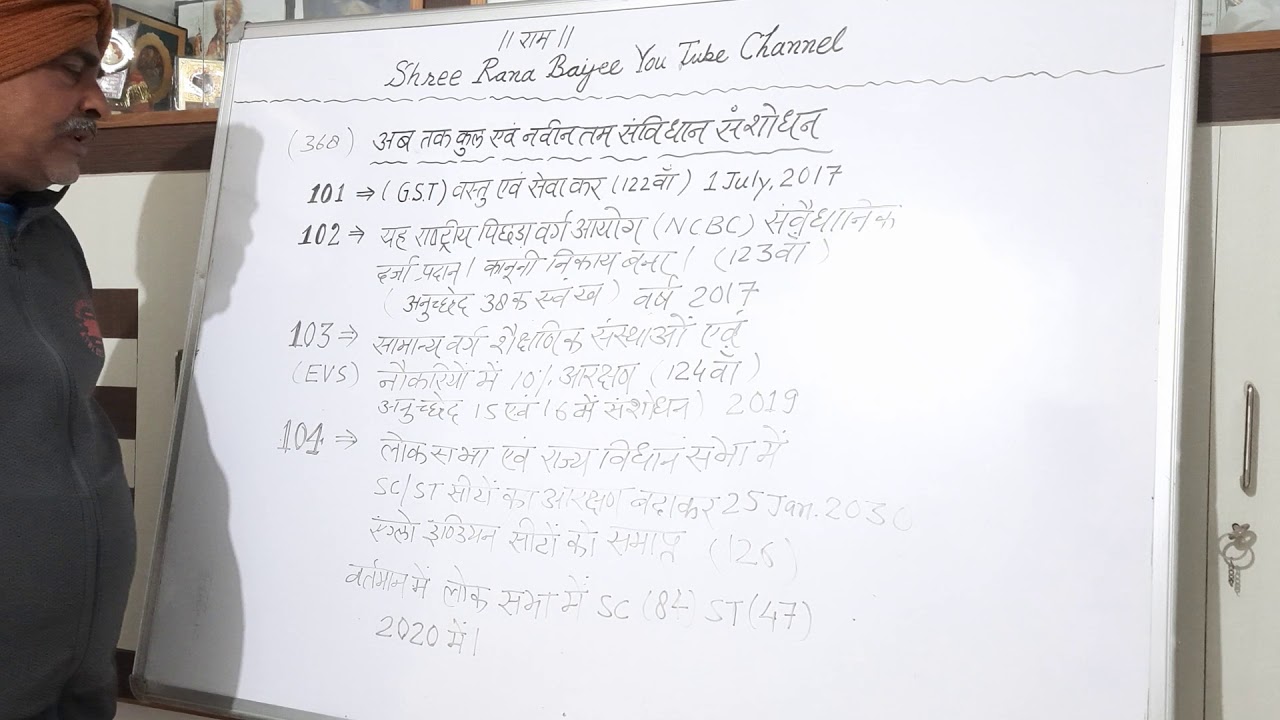 || राम ||
Shree Rana Baijee You Tube Channel
(368) अब तक कुल एवं नवीनतम संविधान संशोधन
101 ⇒ (G.S.T) वस्तु एवं सेवा कर (122वाँ) 1 July, 2017
102 ⇒ यह राष्ट्रीय पिछड़ा वर्ग आयोग (NCBC) संवैधानिक
दर्जा प्रदान। कानूनी निकाय बना। (123वाँ)
(अनुच्छेद 38क स्वं ख) वर्ष 2017
103 ⇒ सामान्य वर्ग शैक्षणिक संस्थाओं एवं
(EVS) नौकरियों में 10% आरक्षण (124वाँ)
अनुच्छेद 15 एवं 16 में संशोधन) 2019
104 ⇒ लोकसभा एवं राज्य विधान सभा में
SC/ST सीटों का आरक्षण बढाकर 25 Jan. 2030
एंग्लो इण्डियन सीटों को समाप्त (126)
वर्तमान में लोक सभा में SC (84) ST (47)
2020 में।